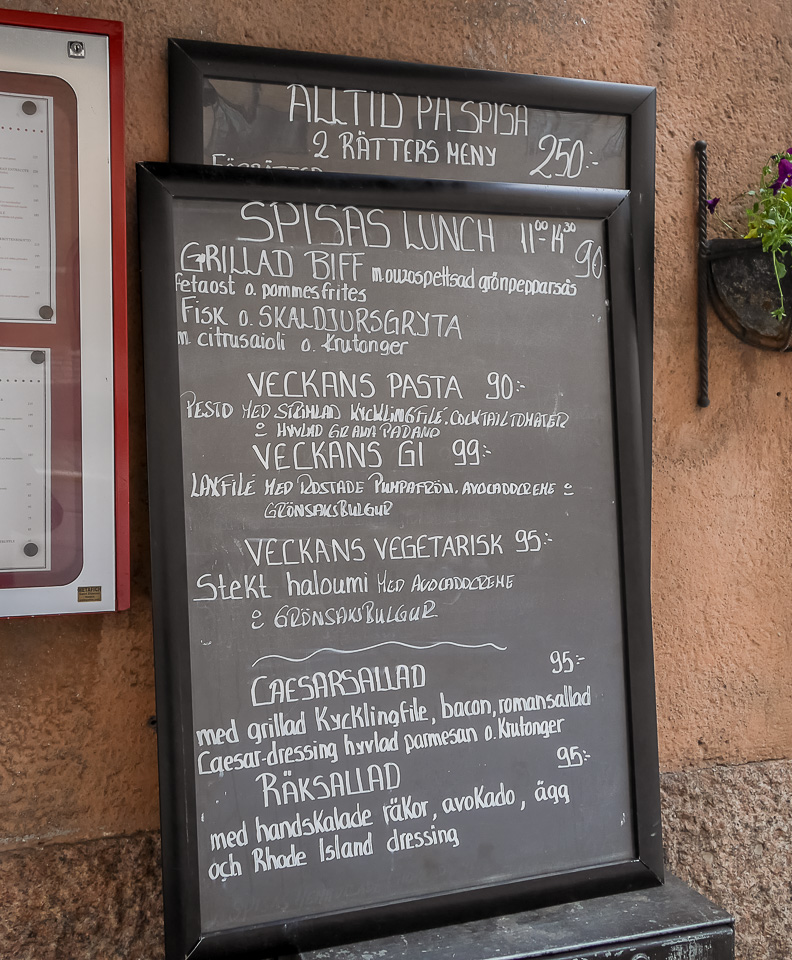 ALLTID PÅ SPISA
2 RÄTTERS MENY 250:-
SPISAS LUNCH 11⁰⁰-14³⁰
GRILLAD BIFF m.ouzospettsad grönpepparsås 90
fetaost o. pommesfrites
FISK o. SKALDJURSGRYTA
m. citrusaioli o. Krutonger
VECKANS PASTA 90:-
PESTO MED STRIMLAD KYCKLINGFILE. COCKTAILTOMATER
& HYVLAD GRANA PADANO
VECKANS GI 99:-
LAXFILE MED ROSTADE PUMPAFRÖN. AVOCADOCREME &
GRÖNSAKSBULGUR
VECKANS VEGETARISK 95:-
Stekt haloumi MED AVOCADOCREME
& GRÖNSAKSBULGUR
CAESARSALLAD 95:-
med grillad Kycklingfile, bacon, romansallad
Caesar-dressing hyvlad parmesan o. Krutonger
RÄKSALLAD 95:-
med handskalade räkor, avokado, ägg
och Rhode Island dressing